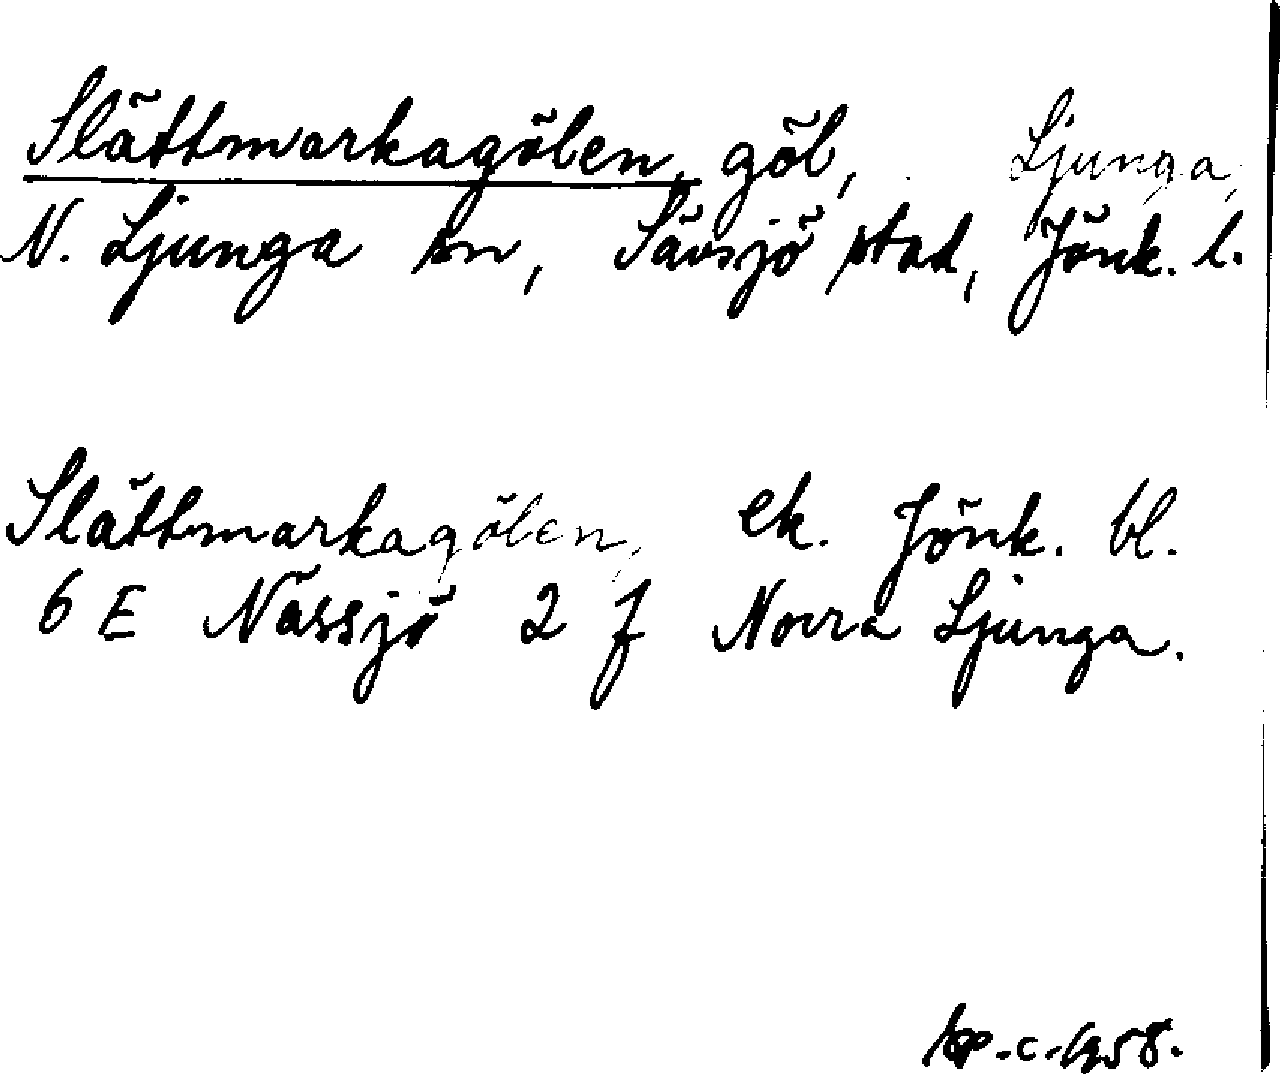 Slättmarkagölen, göl, Ljunga,
N. Ljunga sn, Sävsjö stad, Jönk. l.
Slättmarkagölen, ek. Jönk. bl.
6 E Nässjö 2 f Norra Ljunga.
c. 1958.